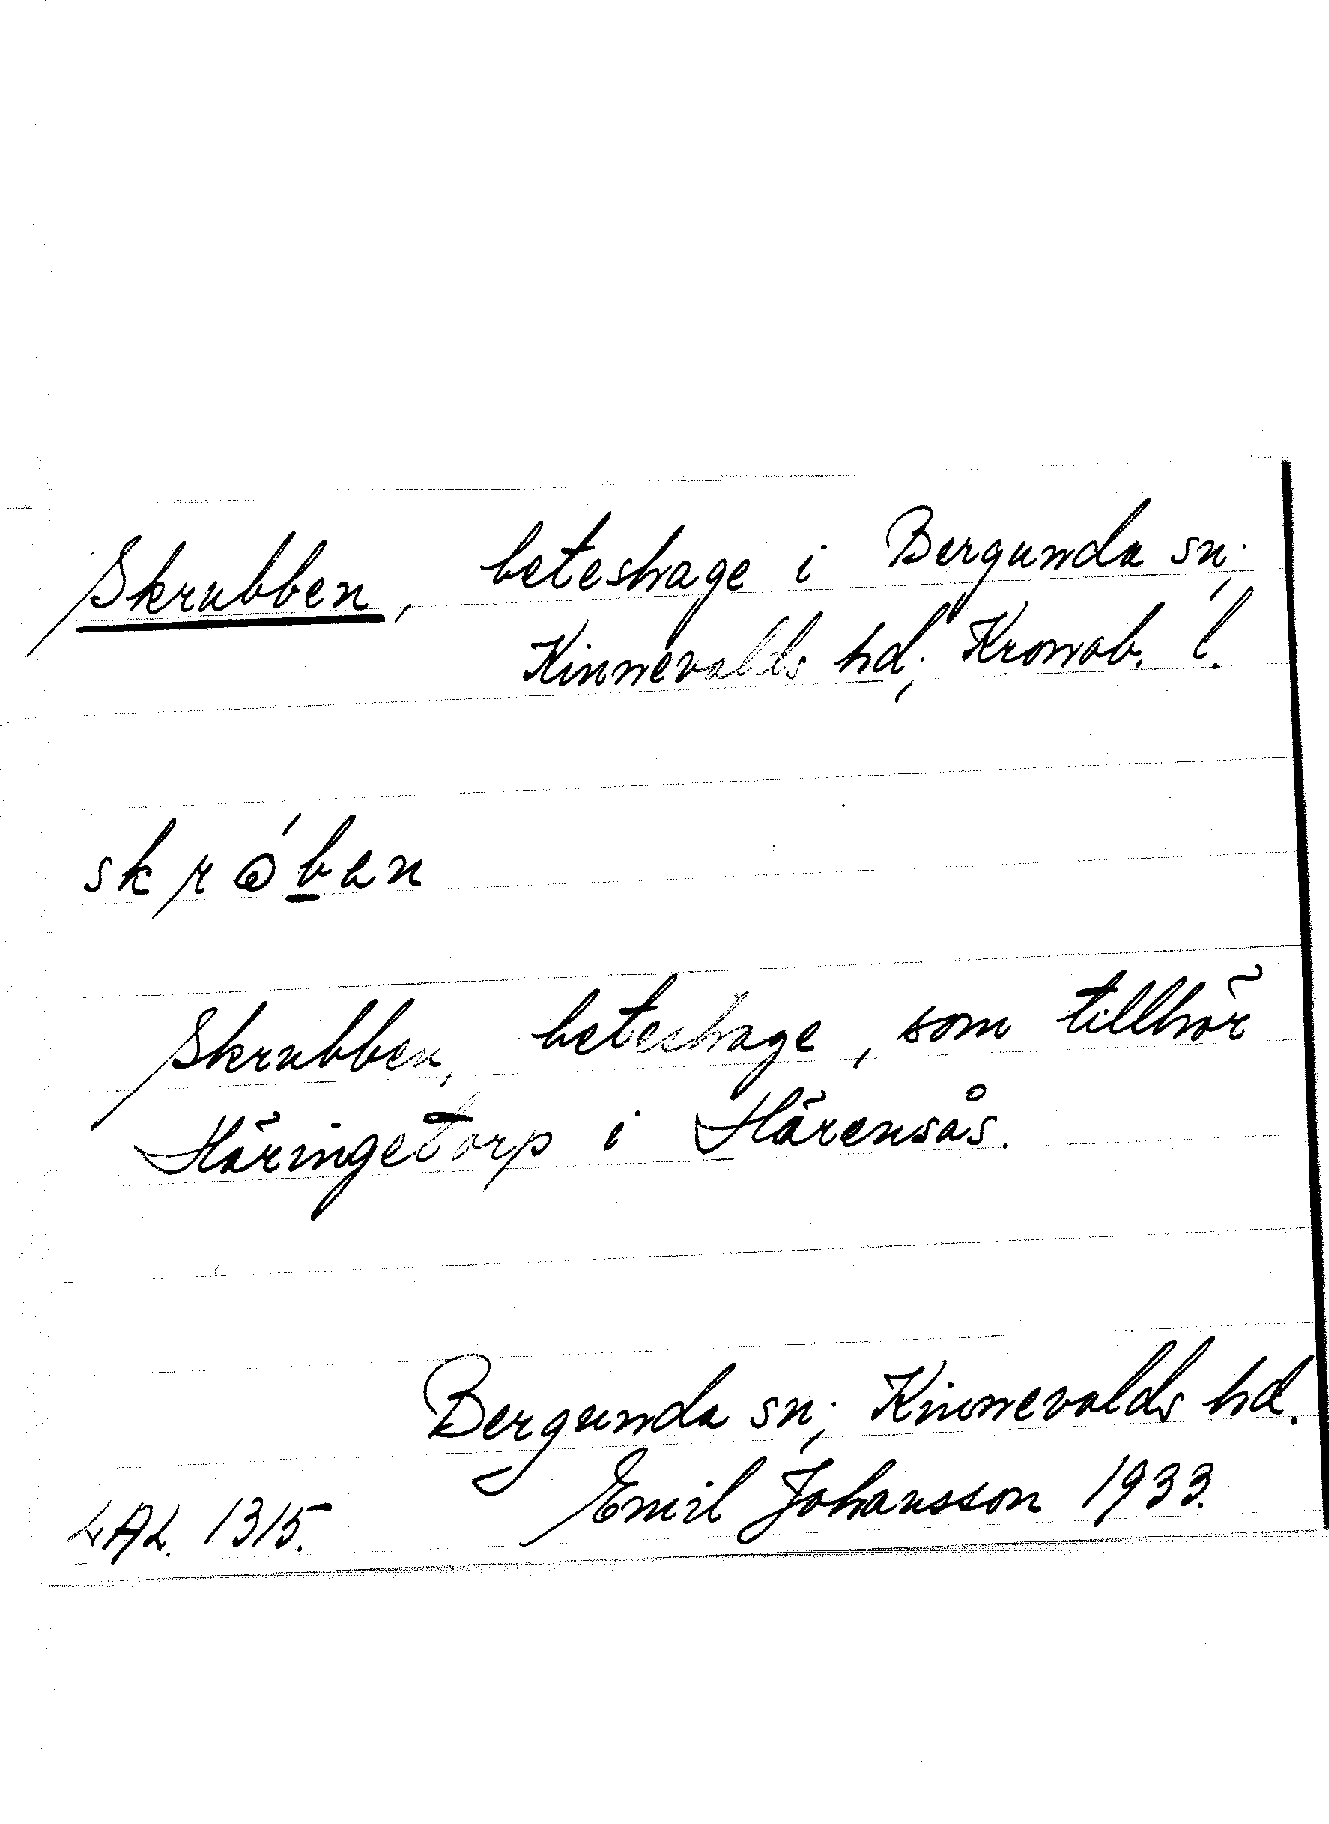 Skrubben, beteshage i Bergunda sn;
Kinnevalds hd; Kronob. l.
skrɷ́b̲en
Skrubben, beteshage, som tillhör
Häringetorp i Härensås.
Bergunda sn; Kinnevalds hd.
Emil Johansson 1933.
LAL. 1315.